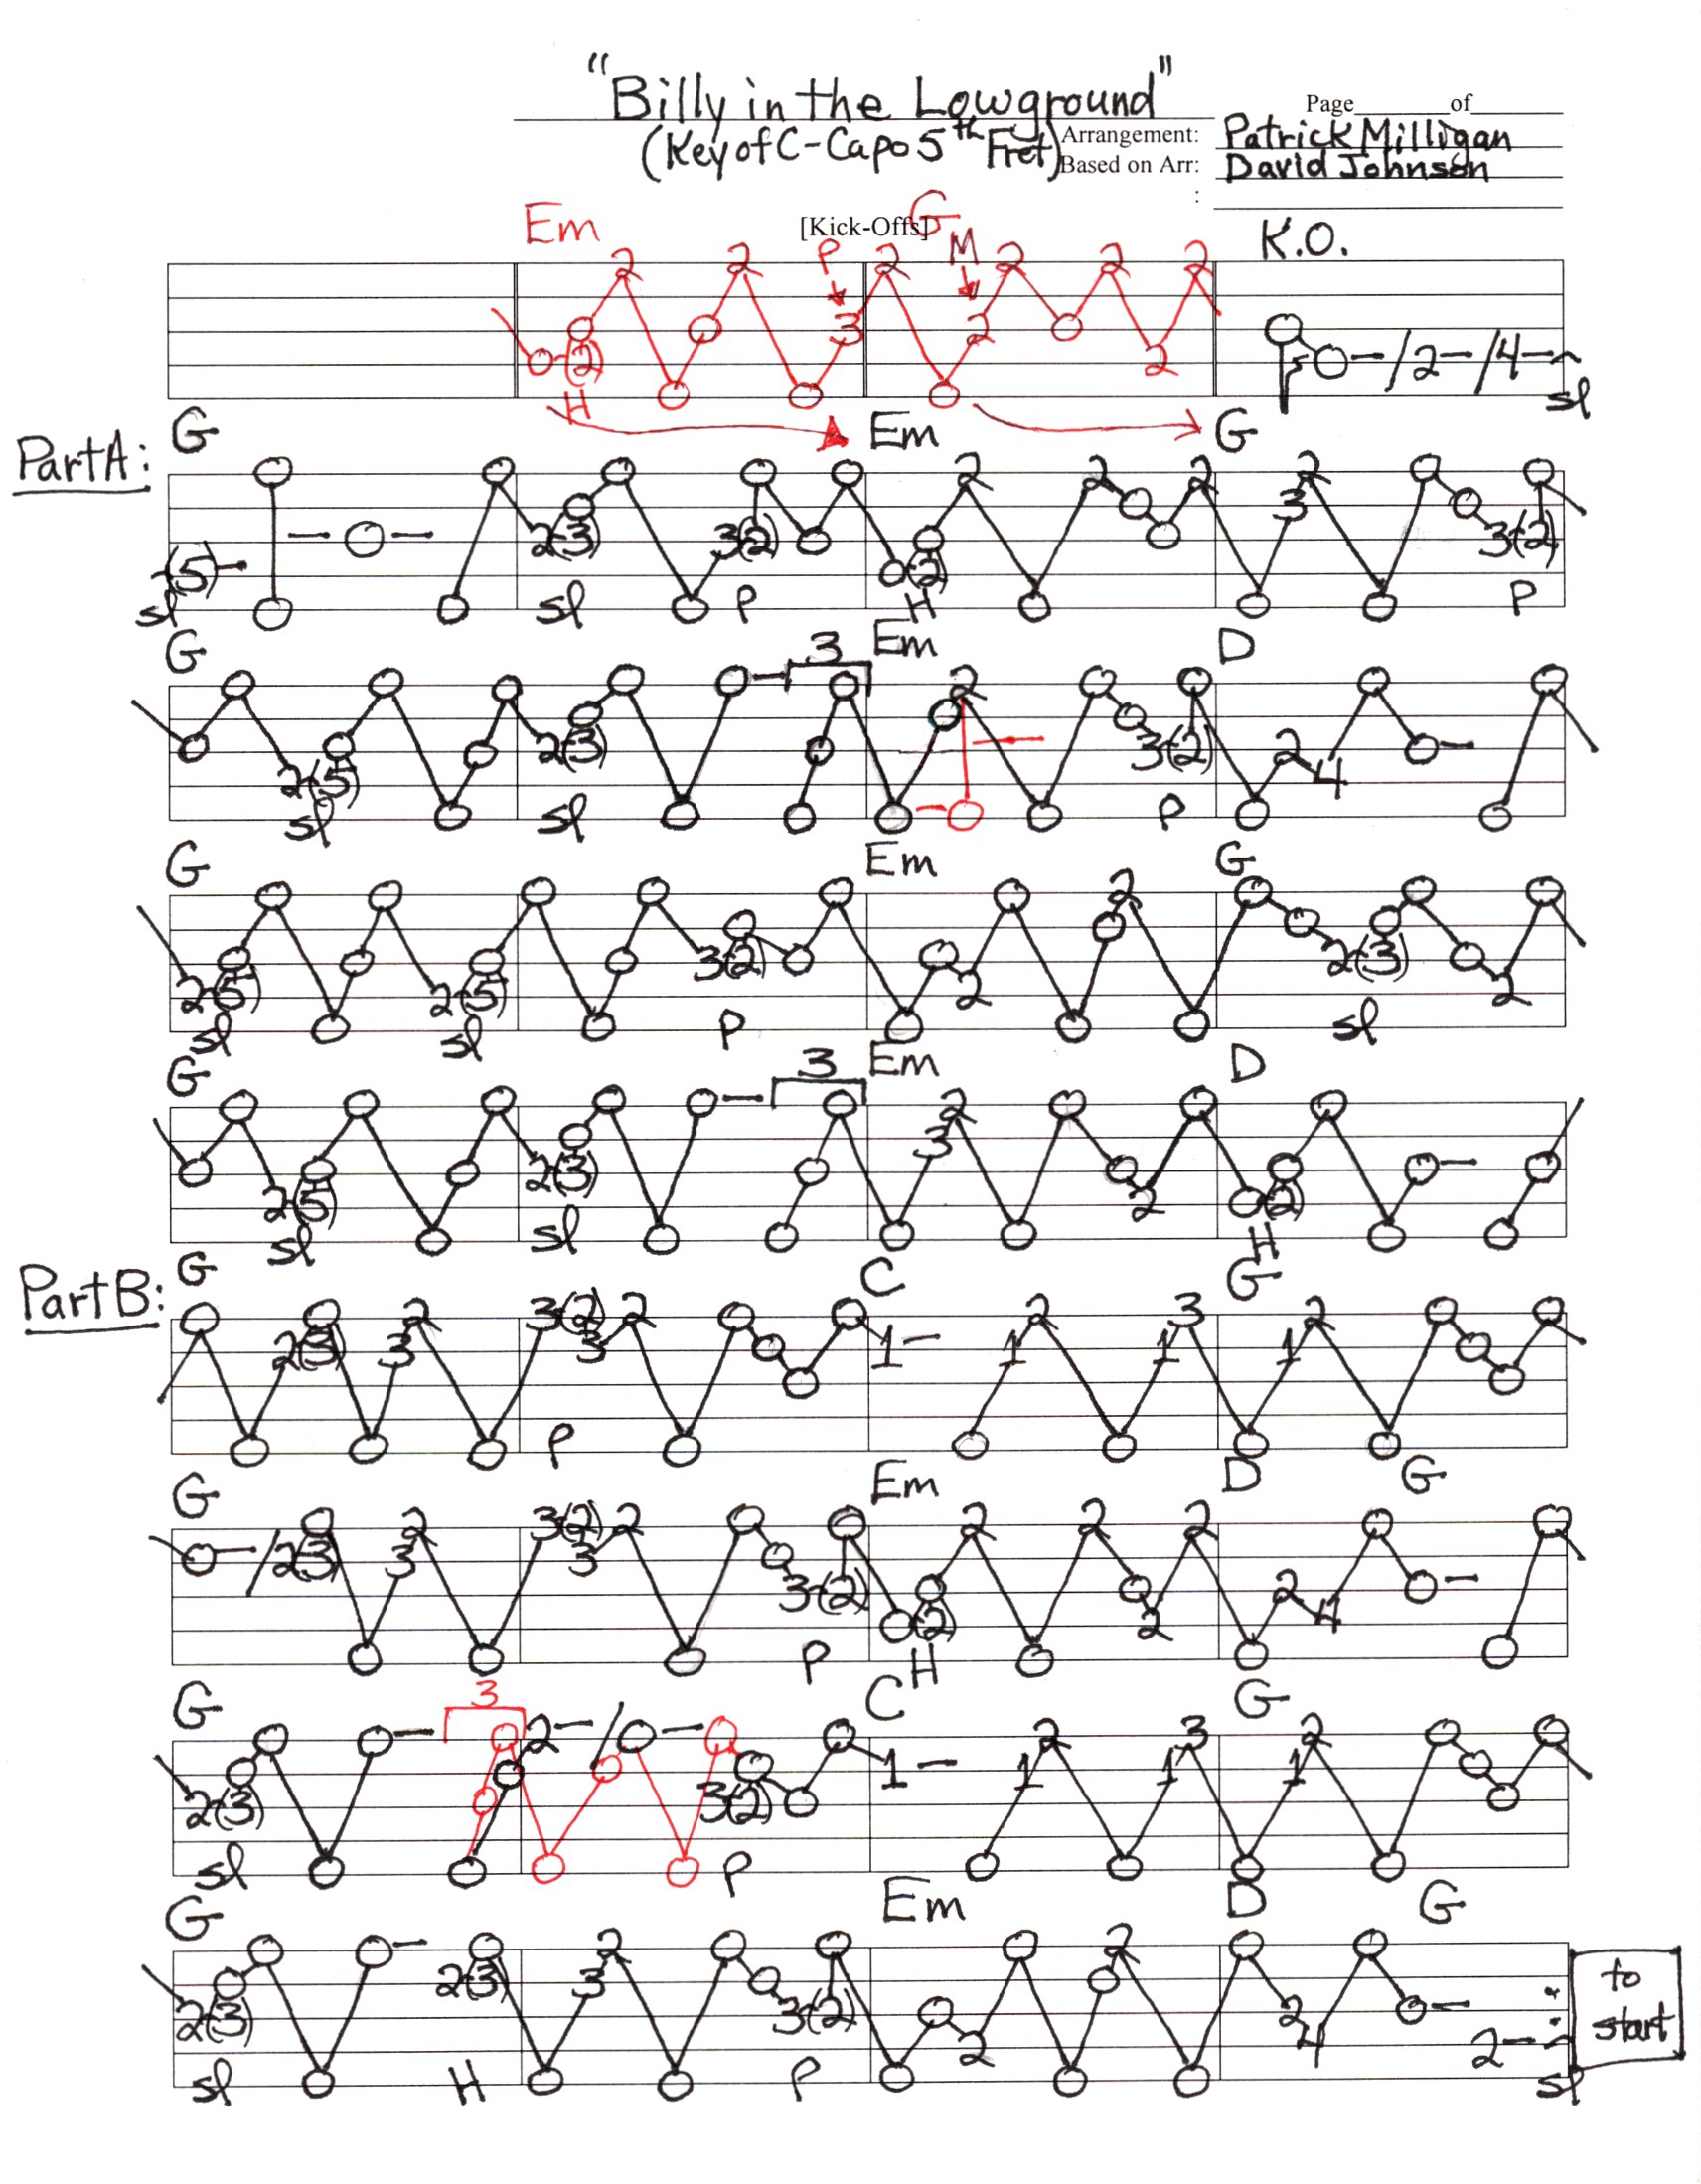 "Billy in the Lowground"
(Key of C - Capo 5th Fret)
Page______of______
Arrangement: Patrick Milligan
Based on Arr: David Johnson
:
[Kick-Offs]
Em G K.O.
P M
2 2 3 2 2 2 2 2 2
(2) /2-/4-
H sl
Part A:
G Em G
(5) 2(3) 3(2) (2) 2 2 2 3 2 3(2)
sl sl P H P
G 3 Em D
2(5) 2(3) 2 3(2) 2 4
sl sl P
G Em G
2(5) 2(5) 3(2) 2 2 2(3) 2
sl sl P sl
G 3 Em D
2(5) 2(3) 3 2 2 (2)
sl sl H
Part B:
G C G
2(3) 3 2 3(2) 3 2 1- 1 2 1 3 1 2
P
G Em D G
/2(3) 3 2 3(2) 3 2 3(2) (2) 2 2 2 2 2 4
P H
G 3 C G
2(3) 2-/ 3(2) 1- 1 2 1 3 1 2
sl P
G Em D G
2(3) 2(3) 3 2 3(2) 2 2 2 4 2-
sl H P sl
to
start